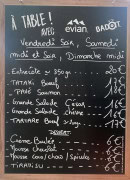 À TABLE !
AVEC evian BADOIT
Vendredi soir, Samedi
midi et soir, Dimanche midi
Entrecôte ~ 350gr 26€
TATAKI Boeuf
PAVÉ Saumon 18€
Grande Salade César 16€
Grande Salade chèvre 16€
TARTARE Boeuf ~ 180gr 17€
DESSERT
Crème Brulée
Mousse chocolat
Mousse coco/choco/Spéculos
TIRAMISU